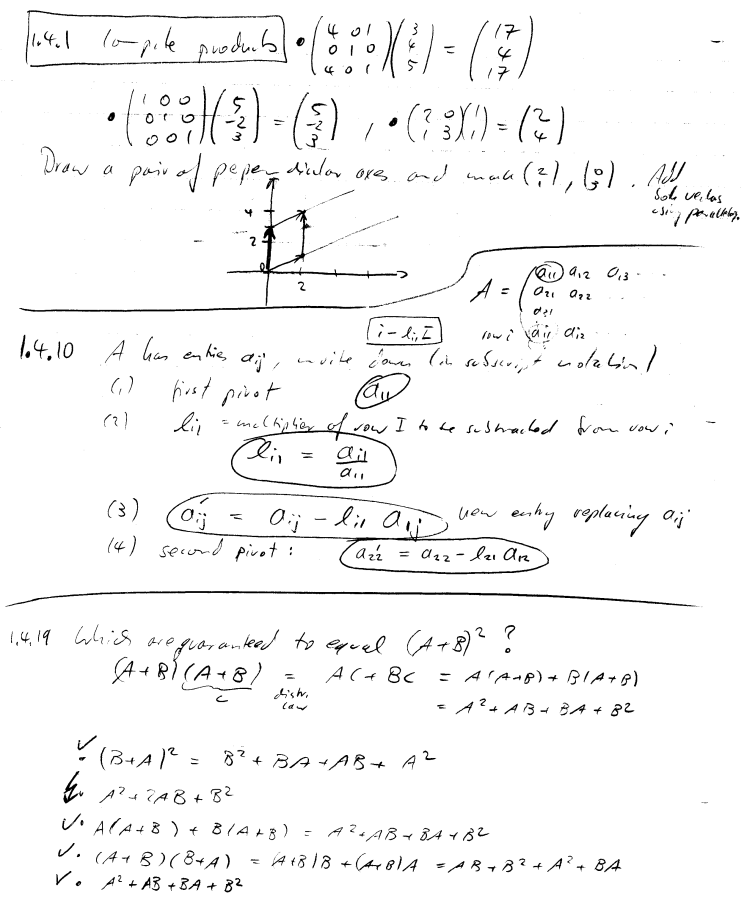 1.4.1 Compute products • (4 0 1 / 0 1 0 / 4 0 1)(3 / 4 / 5) = (17 / 4 / 17)
• (1 0 0 / 0 1 0 / 0 0 1)(5 / -2 / 3) = (5 / -2 / 3) , • (2 0 / 1 3)(1 / 1) = (2 / 4)
Draw a pair of perpendicular axes and mark (2 / 1), (0 / 3). Add
both vectors
using parallelog.
4
2
0
2
A = (a11 a12 a13 ...
a21 a22 ...
a31
row i ai1 ai2
i - li1 I
1.4.10 A has entries aij, write down (in subscript notation)
(1) first pivot a11
(2) li1 = multiplier of row I to be subtracted from row i
li1 = ai1 / a11
(3) a'ij = aij - li1 a1j new entry replacing aij
(4) second pivot : a'22 = a22 - l21 a12
1.4.19 Which are guaranteed to equal (A+B)² ?
(A+B)(A+B) = AC + BC = A(A+B) + B(A+B)
C distr. law
= A² + AB + BA + B²
✓• (B+A)² = B² + BA + AB + A²
• A² + 2AB + B²
✓• A(A+B) + B(A+B) = A² + AB + BA + B²
✓• (A+B)(B+A) = (A+B)B + (A+B)A = AB + B² + A² + BA
✓• A² + AB + BA + B²